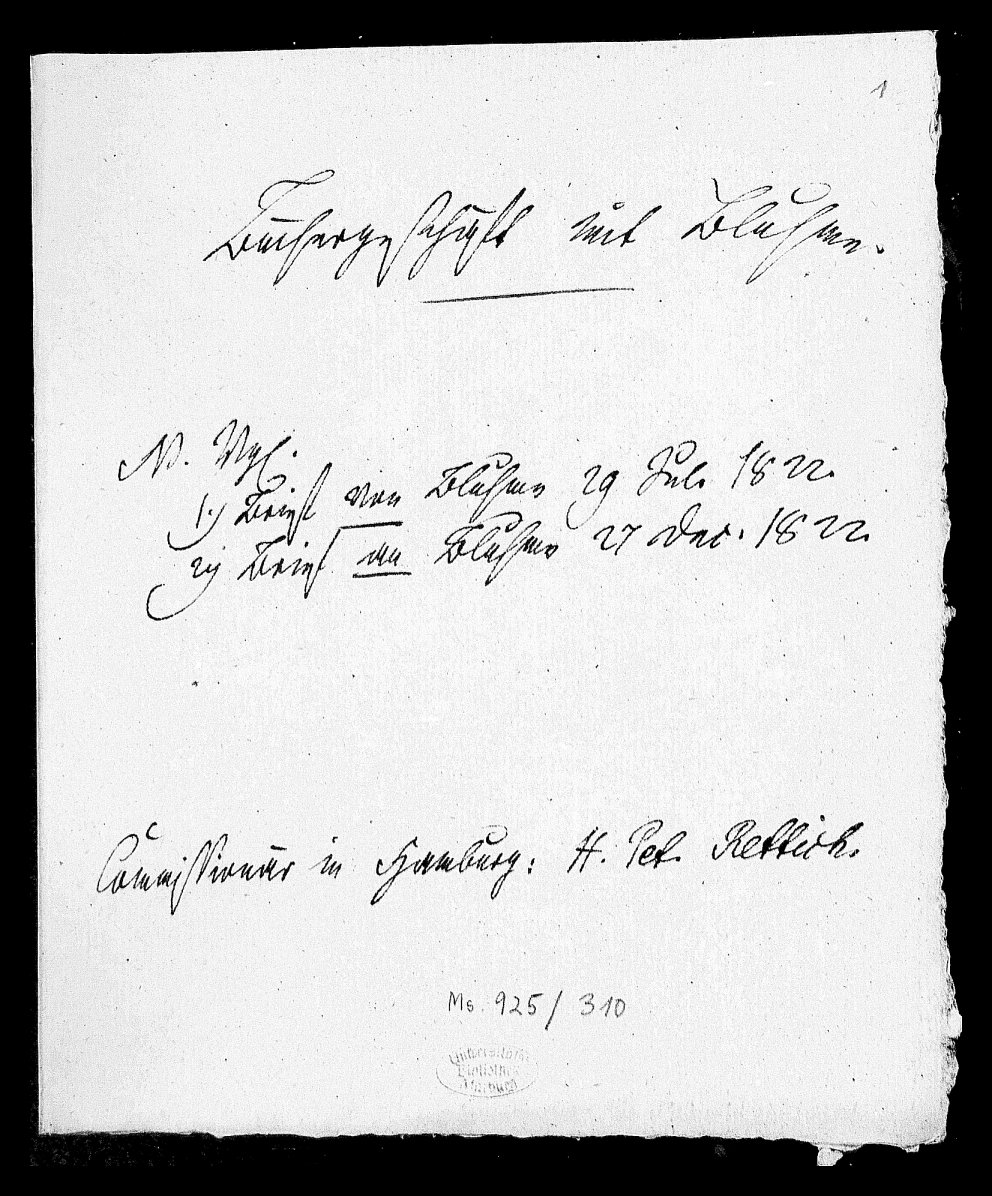 1
Büchergeschäft mit Bluhme.
N. Vgl.
1.) Brief von Bluhme 29 Jul. 1822.
2) Brief an Bluhme 27 Dec. 1822.
Commissionär in Hamburg: H. Pet. Rettich.
Ms. 925/310
Universitäts
Bibliothek
Marburg